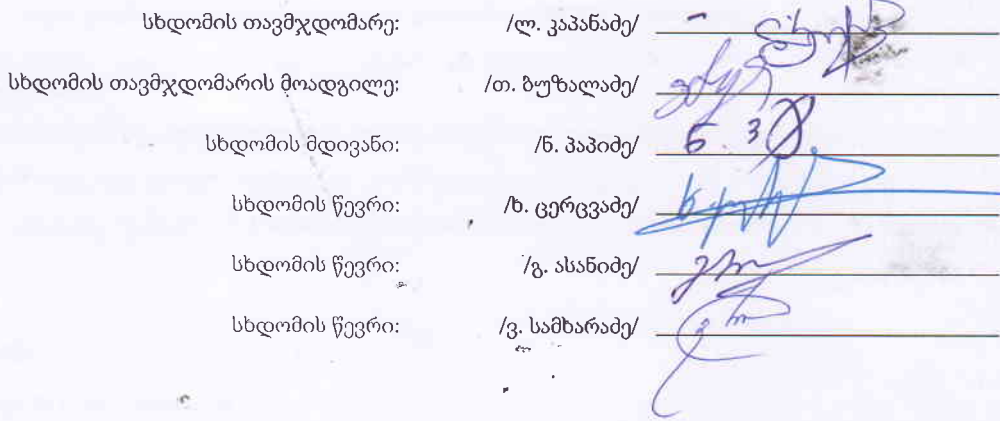 სხდომის თავმჯდომარე: /ლ. კაპანაძე/
სხდომის თავმჯდომარის მოადგილე: /თ. ბუზალაძე/
სხდომის მდივანი: /ნ. პაპიძე/
სხდომის წევრი: /ხ. ცერცვაძე/
სხდომის წევრი: /გ. ასანიძე/
სხდომის წევრი: /ვ. სამხარაძე/